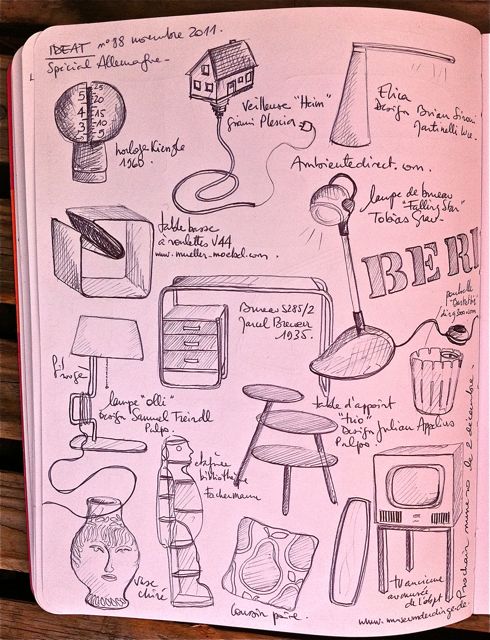 IDEAT n°98 novembre 2011.
Spécial Allemagne -
5 25
20
4 15
3 10
5
horloge Kienzle
1960.
veilleuse "Heim"
Elica
Design Brian Sironi
Martinelli luce.
Ambientedirect.com.
lampe de bureau
"Falling Star"
Tobias Grau
table basse
à roulettes V44
www.mueller-moebel.com.
BERL
Bureau S285/2
Marcel Breuer
1935.
poubelle
fil rouge
lampe "olli"
Design Samuel Treindl
Pulpo.
table d'appoint
"trio"
Design Julian Appelius
Pulpo.
étagère
bibliothèque
vase
chiné
coussin poire.
tv ancienne
au musée
de l'objet
www.museumderdinge.de
Prochain numéro le 2 décembre.